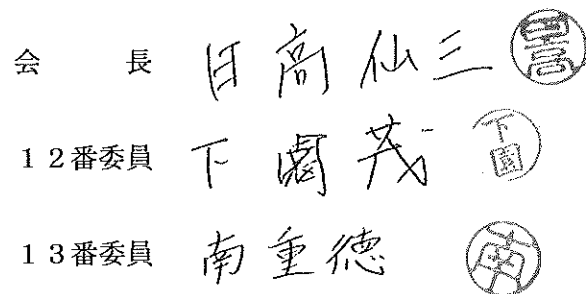 会　　長 日高仙三 日高
12番委員 下園茂 下園
13番委員 南重徳 南